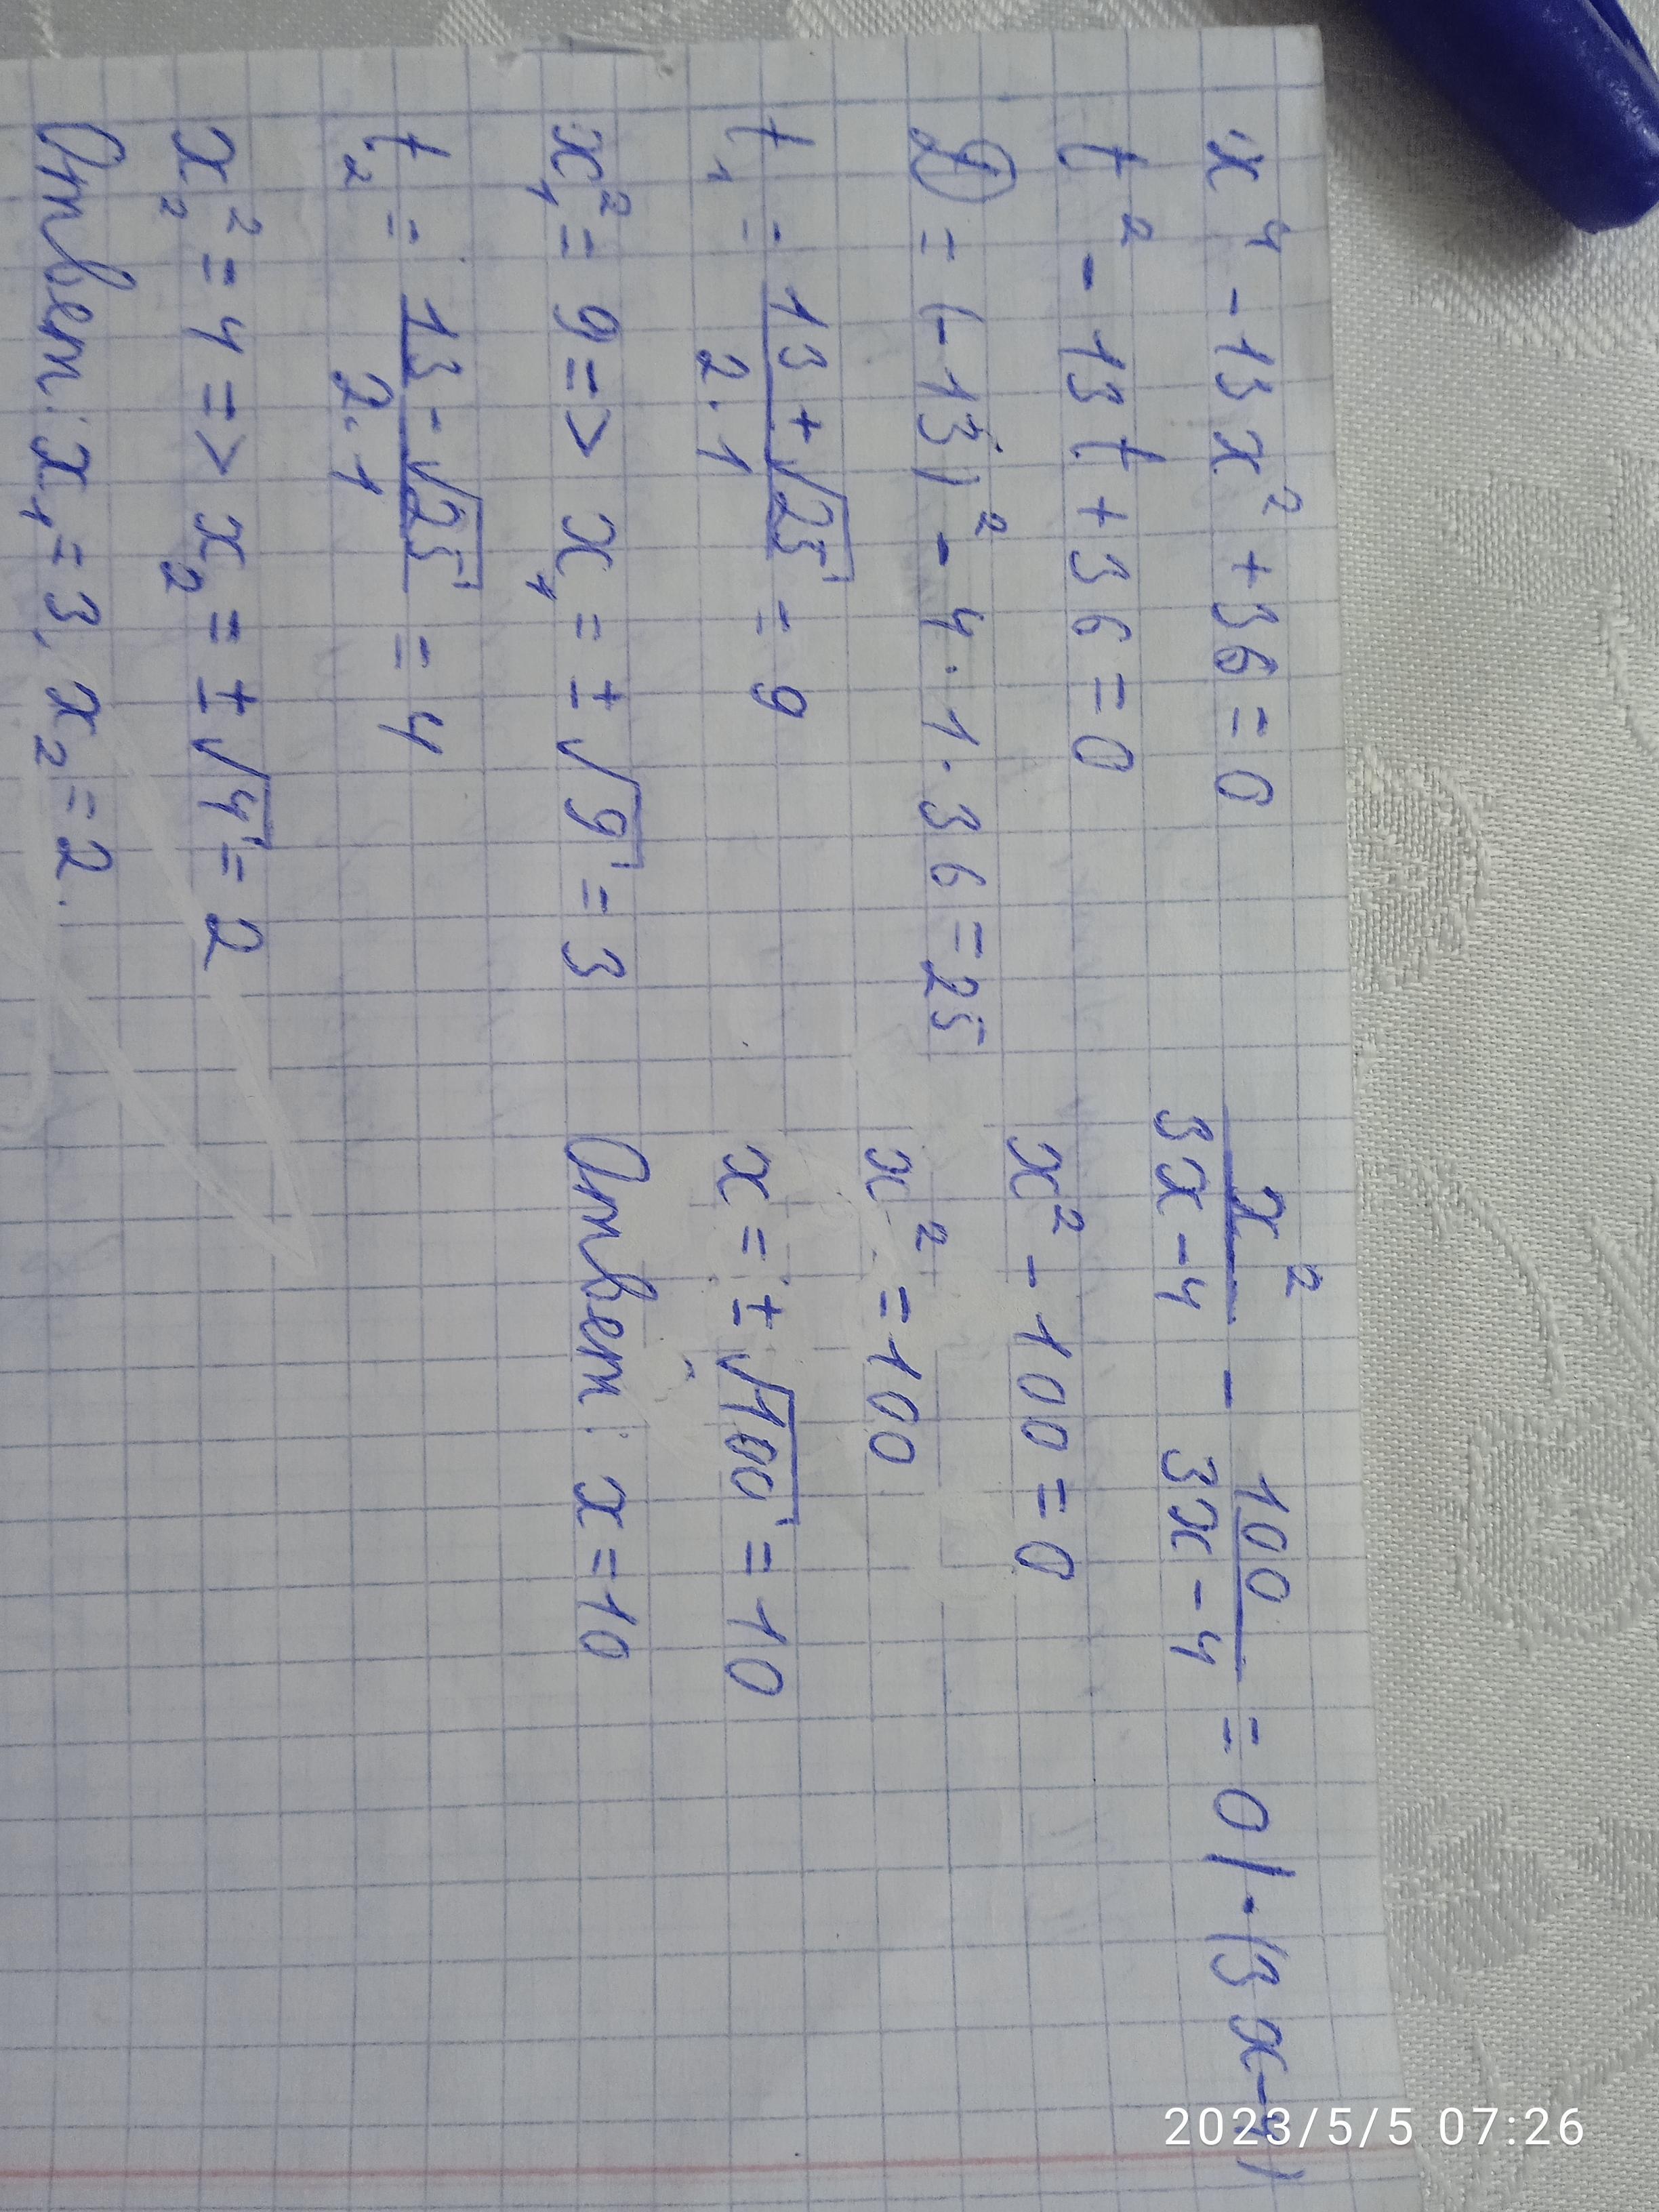 x⁴ - 13x² + 36 = 0
t² - 13t + 36 = 0
D = (-13)² - 4 · 1 · 36 = 25
t₁ = (13 + √25)/(2 · 1) = 9
x₁² = 9 => x₁ = ± √9 = 3
t₂ = (13 - √25)/(2 · 1) = 4
x₂² = 4 => x₂ = ± √4 = 2
Ответ: x₁ = 3, x₂ = 2.
x²/(3x - 4) - 100/(3x - 4) = 0 | · (3x - 4)
x² - 100 = 0
x² = 100
x = ± √100 = 10
Ответ: x = 10
2023/5/5 07:26